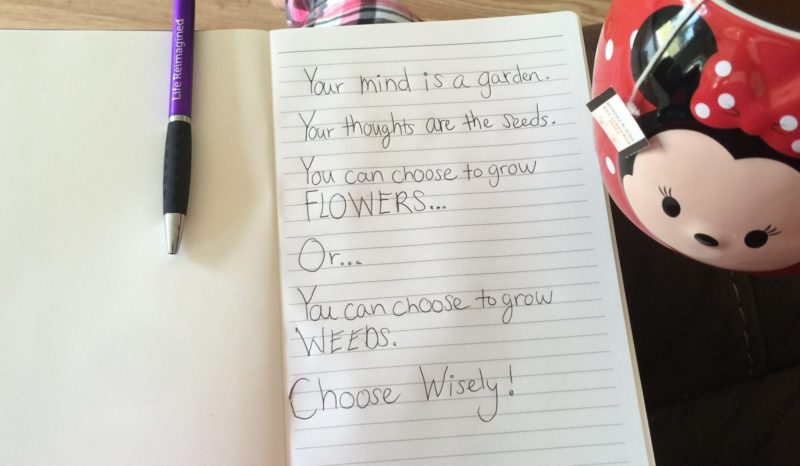 Life Reimagined
Your mind is a garden.
Your thoughts are the seeds.
You can choose to grow
FLOWERS...
Or...
You can choose to grow
WEEDS.
Choose Wisely!